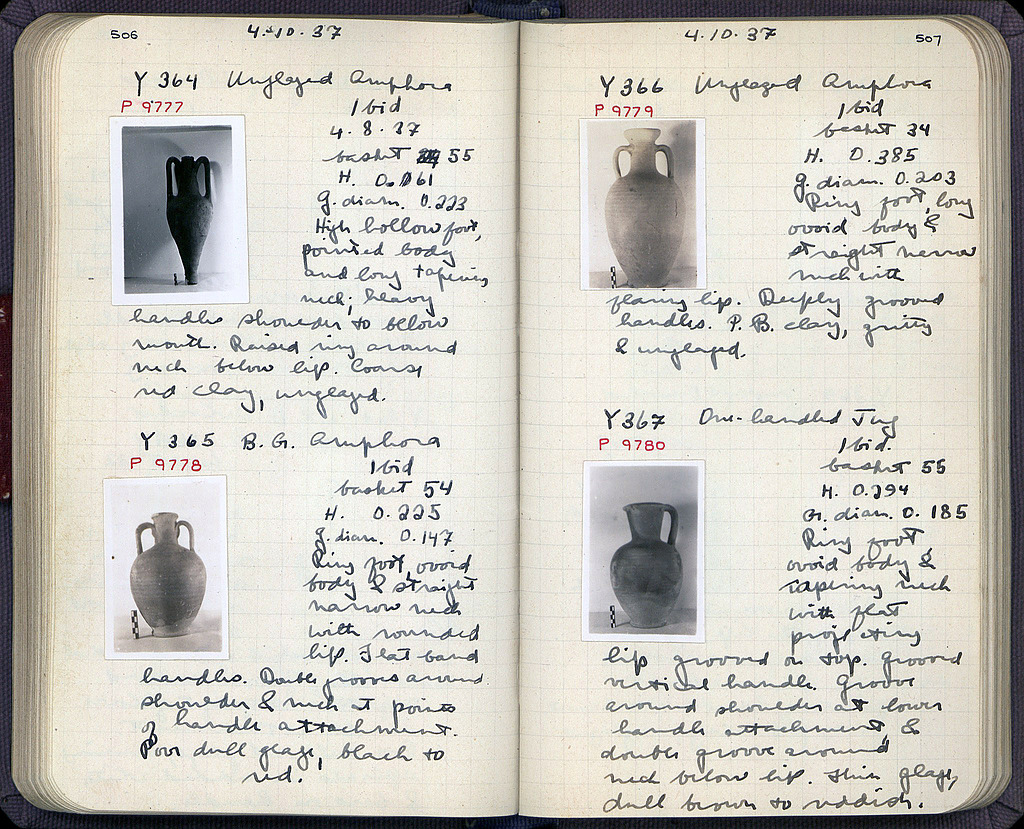 506
4.10.37
Y 364 Unglazed Amphora
P 9777
Ibid
4.8.37
basket 55
H. 0.61
G. diam. 0.223
High hollow foot,
pointed body
and long tapering
neck; heavy
handles shoulder to below
mouth. Raised ring around
neck below lip. Coarse
red clay, unglazed.
Y 365 B.G. Amphora
P 9778
Ibid
basket 54
H. 0.225
G. diam. 0.147
Ring foot, ovoid
body & straight
narrow neck
with rounded
lip. Flat band
handles. Double grooves around
shoulder & neck at points
of handle attachment.
Poor dull glaze, black to
red.
4.10.37
507
Y 366 Unglazed Amphora
P 9779
Ibid
basket 34
H. 0.385
G. diam. 0.203
Ring foot, long
ovoid body &
straight narrow
neck with
flaring lip. Deeply grooved
handles. P.B. clay, gritty
& unglazed.
Y 367 One-handled Jug
P 9780
Ibid.
basket 55
H. 0.294
G. diam. 0.185
Ring foot
ovoid body &
tapering neck
with flat
projecting
lip grooved on top. Grooved
vertical handle. Groove
around shoulder at lower
handle attachment, &
double groove around
neck below lip. Thin glaze,
dull brown to reddish.